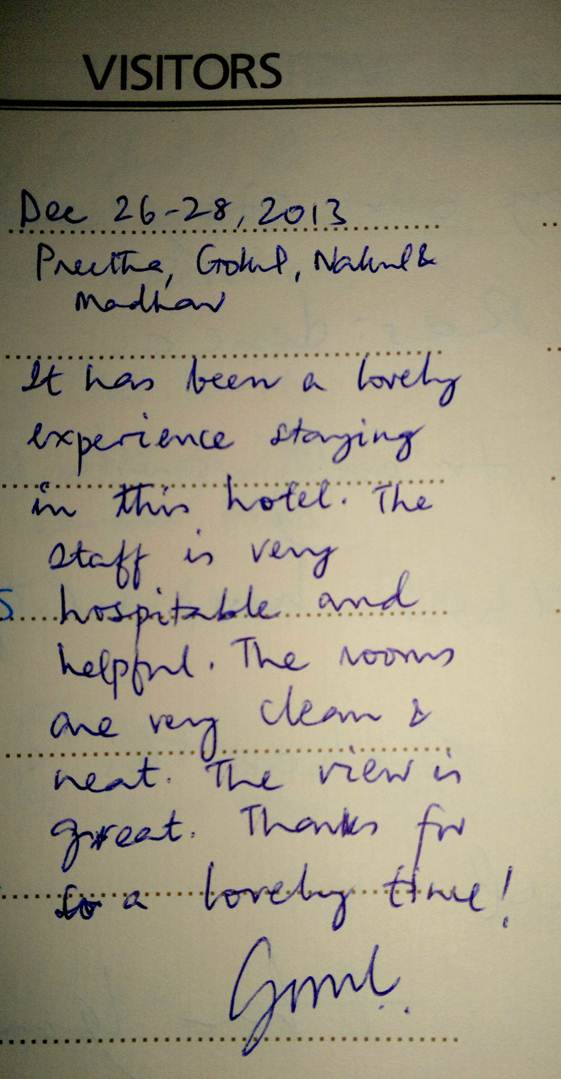 VISITORS
Dec 26-28, 2013
Preetha, Gokul, Nakul &
Madhav
It has been a lovely
experience staying
in this hotel. The
staff is very
hospitable and
helpful. The rooms
are very clean &
neat. The view is
great. Thanks for
a lovely time!